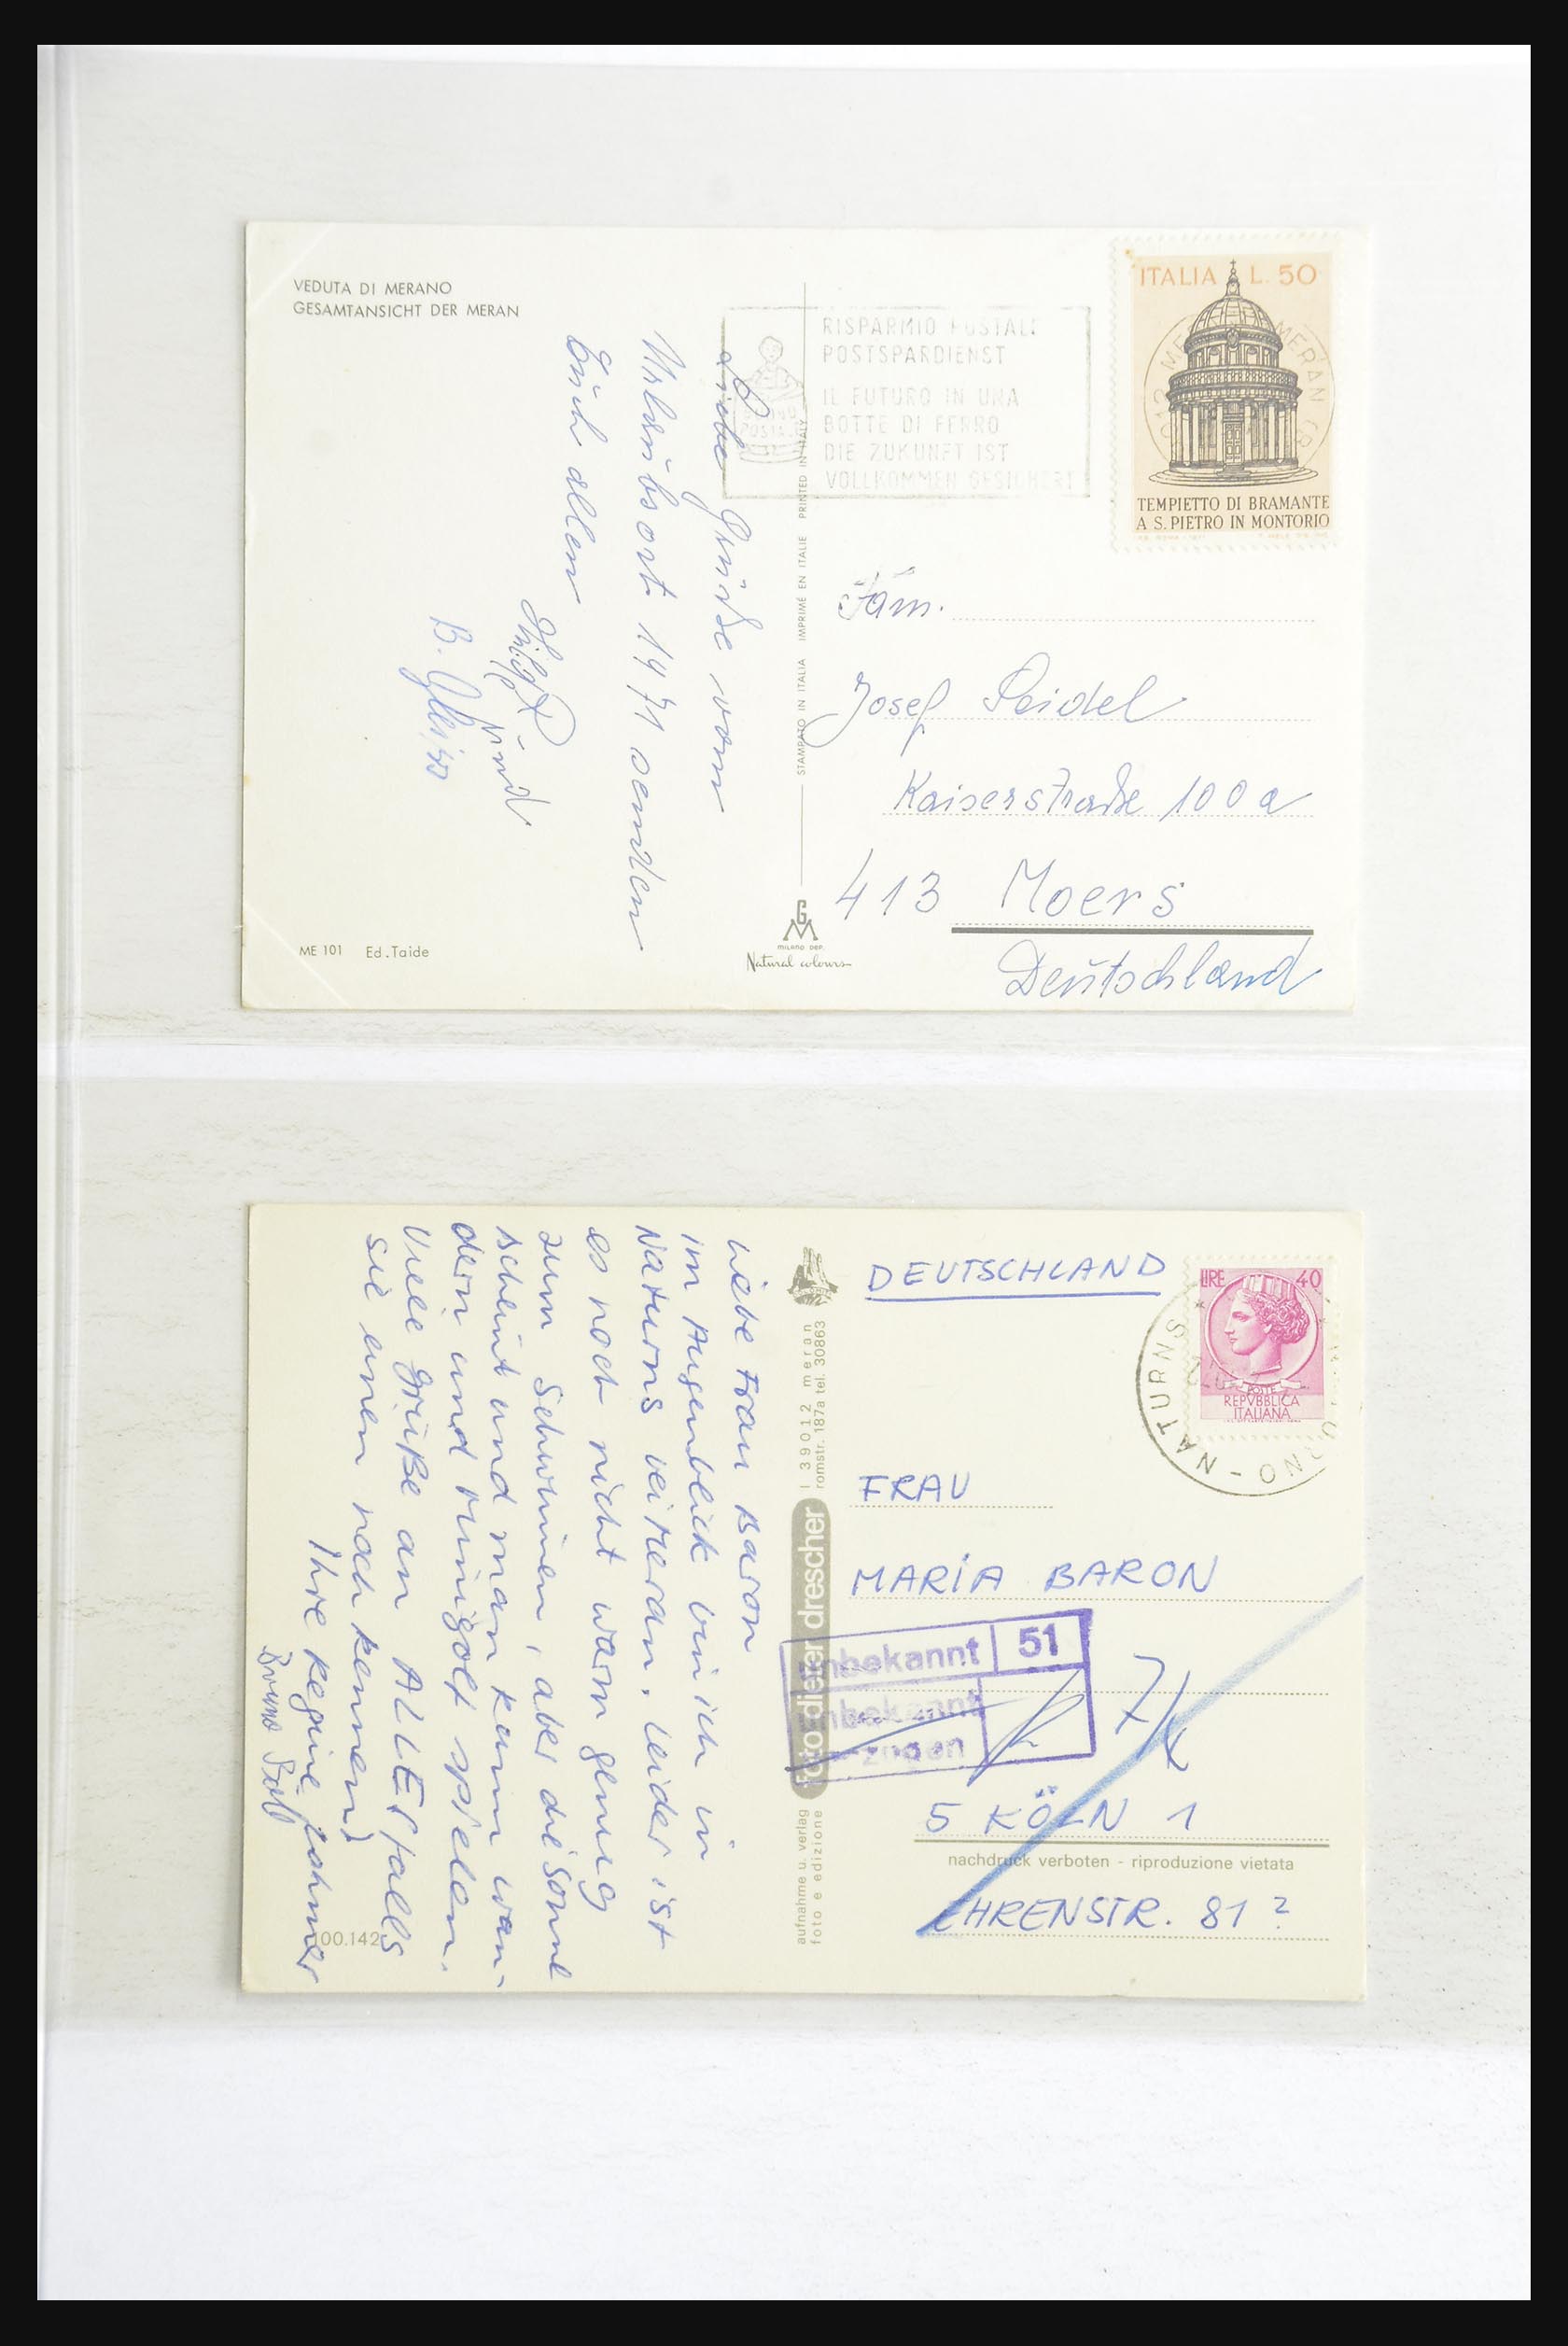 VEDUTA DI MERANO
GESAMTANSICHT DER MERAN
Liebe Grüße vom
Urlaubsort 1971 senden
Euch allen
und
B.
ME 101 Ed. Taide
STAMPATO IN ITALIA IMPRIMÉ EN ITALIE PRINTED IN ITALY
MILANO DEP.
Natural colours
RISPARMIO POSTALE
POSTSPARDIENST
IL FUTURO IN UNA
BOTTE DI FERRO
DIE ZUKUNFT IST
VOLLKOMMEN GESICHERT
ITALIA L. 50
TEMPIETTO DI BRAMANTE
A S. PIETRO IN MONTORIO
MERAN
Fam.
Josef Seidel
Kaiserstraße 100 a
413 Moers
Deutschland
Liebe Frau Baron
im Augenblick bin ich in
Naturns bei Meran. Leider ist
es noch nicht warm genug
zum Schwimmen, aber die Sonne
scheint und man kann wan-
dern und Minigolf spielen.
Viele Grüße an ALLE, falls
sie einen noch kennen!
Ihre Regine
00.142
I 39012 meran
romstr. 187a tel. 30863
foto dieter drescher
aufnahme u. verlag
foto e edizione
DEUTSCHLAND
LIRE 40
POSTE
REPVBBLICA
ITALIANA
NATURNO - NATURNS
FRAU
MARIA BARON
Unbekannt 51
Unbekannt
verzogen
5 KÖLN 1
nachdruck verboten - riproduzione vietata
EHRENSTR. 81 ?